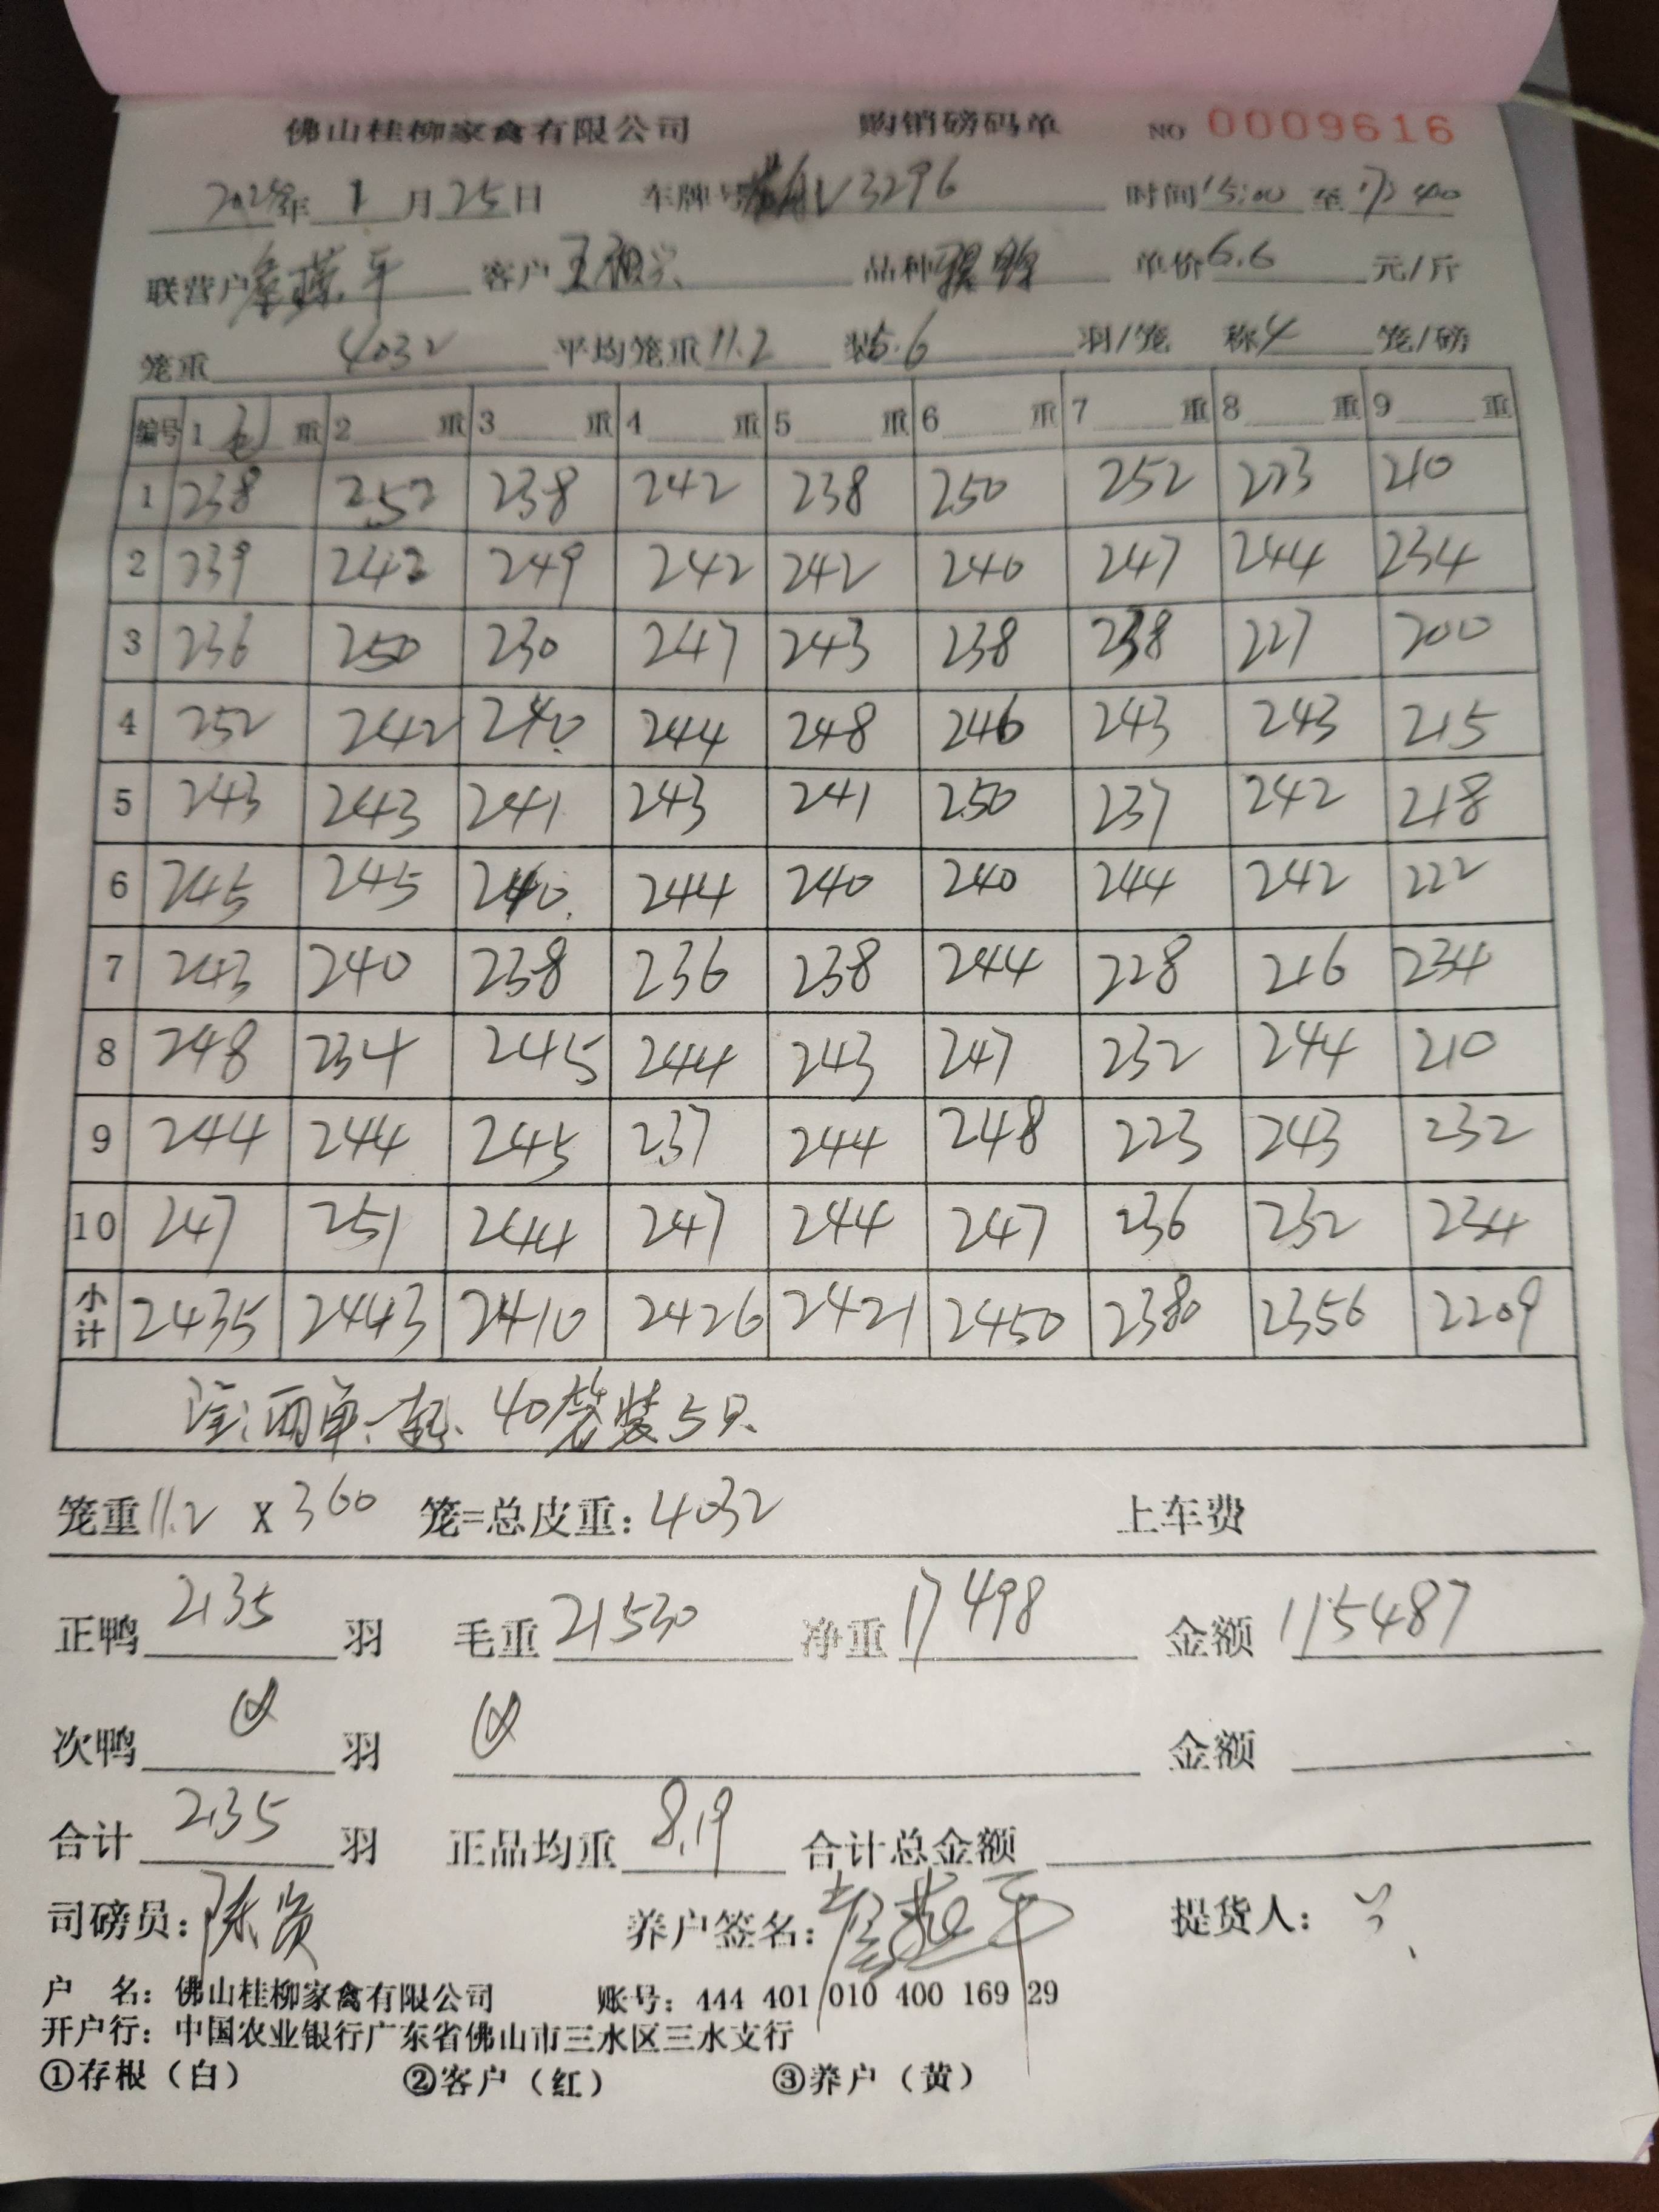 佛山桂柳家禽有限公司 购销磅码单 NO 0009616
年 1 月 25 日 车牌号 V3296 时间 15:00 至 17:40
联营户 平 客户 王 兴 品种 单价 6.6 元/斤
笼重 4032 平均笼重 11.2 装 5.6 羽/笼 称 4 笼/磅
编号 1 重 2 重 3 重 4 重 5 重 6 重 7 重 8 重 9 重
1 238 252 238 242 238 250 252 223 210
2 239 242 249 242 242 240 247 244 234
3 236 250 230 247 243 238 238 227 200
4 252 242 240 244 248 246 243 243 215
5 243 243 241 243 241 250 237 242 218
6 245 245 240 244 240 240 244 242 222
7 243 240 238 236 238 244 228 216 234
8 248 234 245 244 243 247 232 244 210
9 244 244 245 237 244 248 223 243 232
10 247 251 244 247 244 247 236 232 234
小计 2435 2443 2410 2426 2421 2450 2380 2356 2209
注:两单一起. 40笼装5只
笼重 11.2 X 360 笼=总皮重: 4032 上车费
正鸭 2135 羽 毛重 21530 净重 17498 金额 115487
次鸭 羽 金额
合计 2135 羽 正品均重 8.19 合计总金额
司磅员: 陈贤 养户签名: 平 提货人:
户 名: 佛山桂柳家禽有限公司 账号: 444 401 010 400 169 29
开户行: 中国农业银行广东省佛山市三水区三水支行
①存根(白) ②客户(红) ③养户(黄)